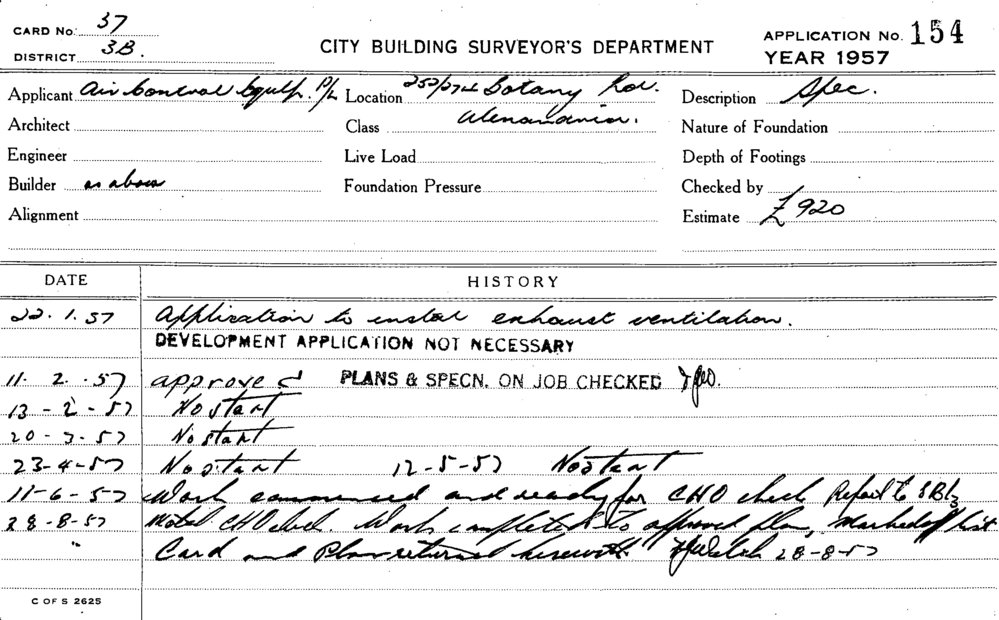 CARD No. 37
DISTRICT 3B.
CITY BUILDING SURVEYOR'S DEPARTMENT
APPLICATION No. 154
YEAR 1957
Applicant Air Control Equip. P/L Location 252/274 Botany Rd. Description Spec.
Architect Class Alexandria. Nature of Foundation
Engineer Live Load Depth of Footings
Builder as above Foundation Pressure Checked by
Alignment Estimate £920
DATE HISTORY
22.1.57 Application to instal exhaust ventilation.
DEVELOPMENT APPLICATION NOT NECESSARY
11.2.57 approved PLANS & SPECN. ON JOB CHECKED
13-2-57 No start
20-3-57 No start
23-4-57 No start 12-5-57 No start
11-6-57 Work commenced and ready for CHO check Report to
28-8-57 Noted CHO check. Work completed to approved plan, Marked off list
" Card and Plan returned herewith. 28-8-57
C OF S 2625